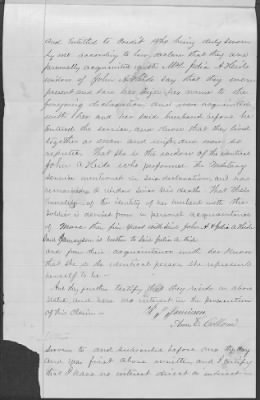 and entitled to credit who being duly sworn
by me according to law, declare that they are
personally acquainted with Mrs. Julia A. Heide
widow of John A. Heide say that they were
present and saw her sign her name to the
foregoing declaration and were acquainted
with her and her said husband before he
entered the service, and know that they lived
together as man and wife, and were so
reputed. That she is the widow of the identical
John A Heide who performed the Military
service mentioned in said declaration, and has
remained a widow since his death. That their
knowledge of the identity of her husband with this
soldier is derived from a personal acquaintance
of More than five years with said John A & Julia A Heide
Said Jamieson is brother to said Julia A Heide
and from their acquaintance with her know
that she is the identical person she represents
herself to be
And they further testify that they reside as above
stated and have no interest in the prosecution
of this claim
Jamieson
Ann E.
Sworn to and subscribed before me the day
and year first above written and I certify
that I have no interest direct or indirect